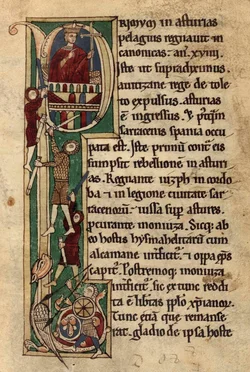 Primum in asturias
pelagius regnauit in
canonicas: an. xviiii.
Iste ut supradiximus
a uitizane rege de tole
to expulsus. asturias
ē ingressus. & p̄stqm̄
sarraceni spania occu
pata est. Iste primū contᵃ eis
sumpsit rebellionē in astur
as. Regnante iuzph in cordo
ba & in legione ciuitate sar
racenorū. iussa sup astures.
pcurante monuza. Sicq; ab
eo hostis hysmahelitarū cum
alcamane int̄ficit². & oppa eps
capit². Postremoq; monuza
int̄ficit². sic ex tunc reddi
ta ē libtas pplo xp̄ianor̄.
Tunc etiā que remanse
rat. gladio de ipsa hoste